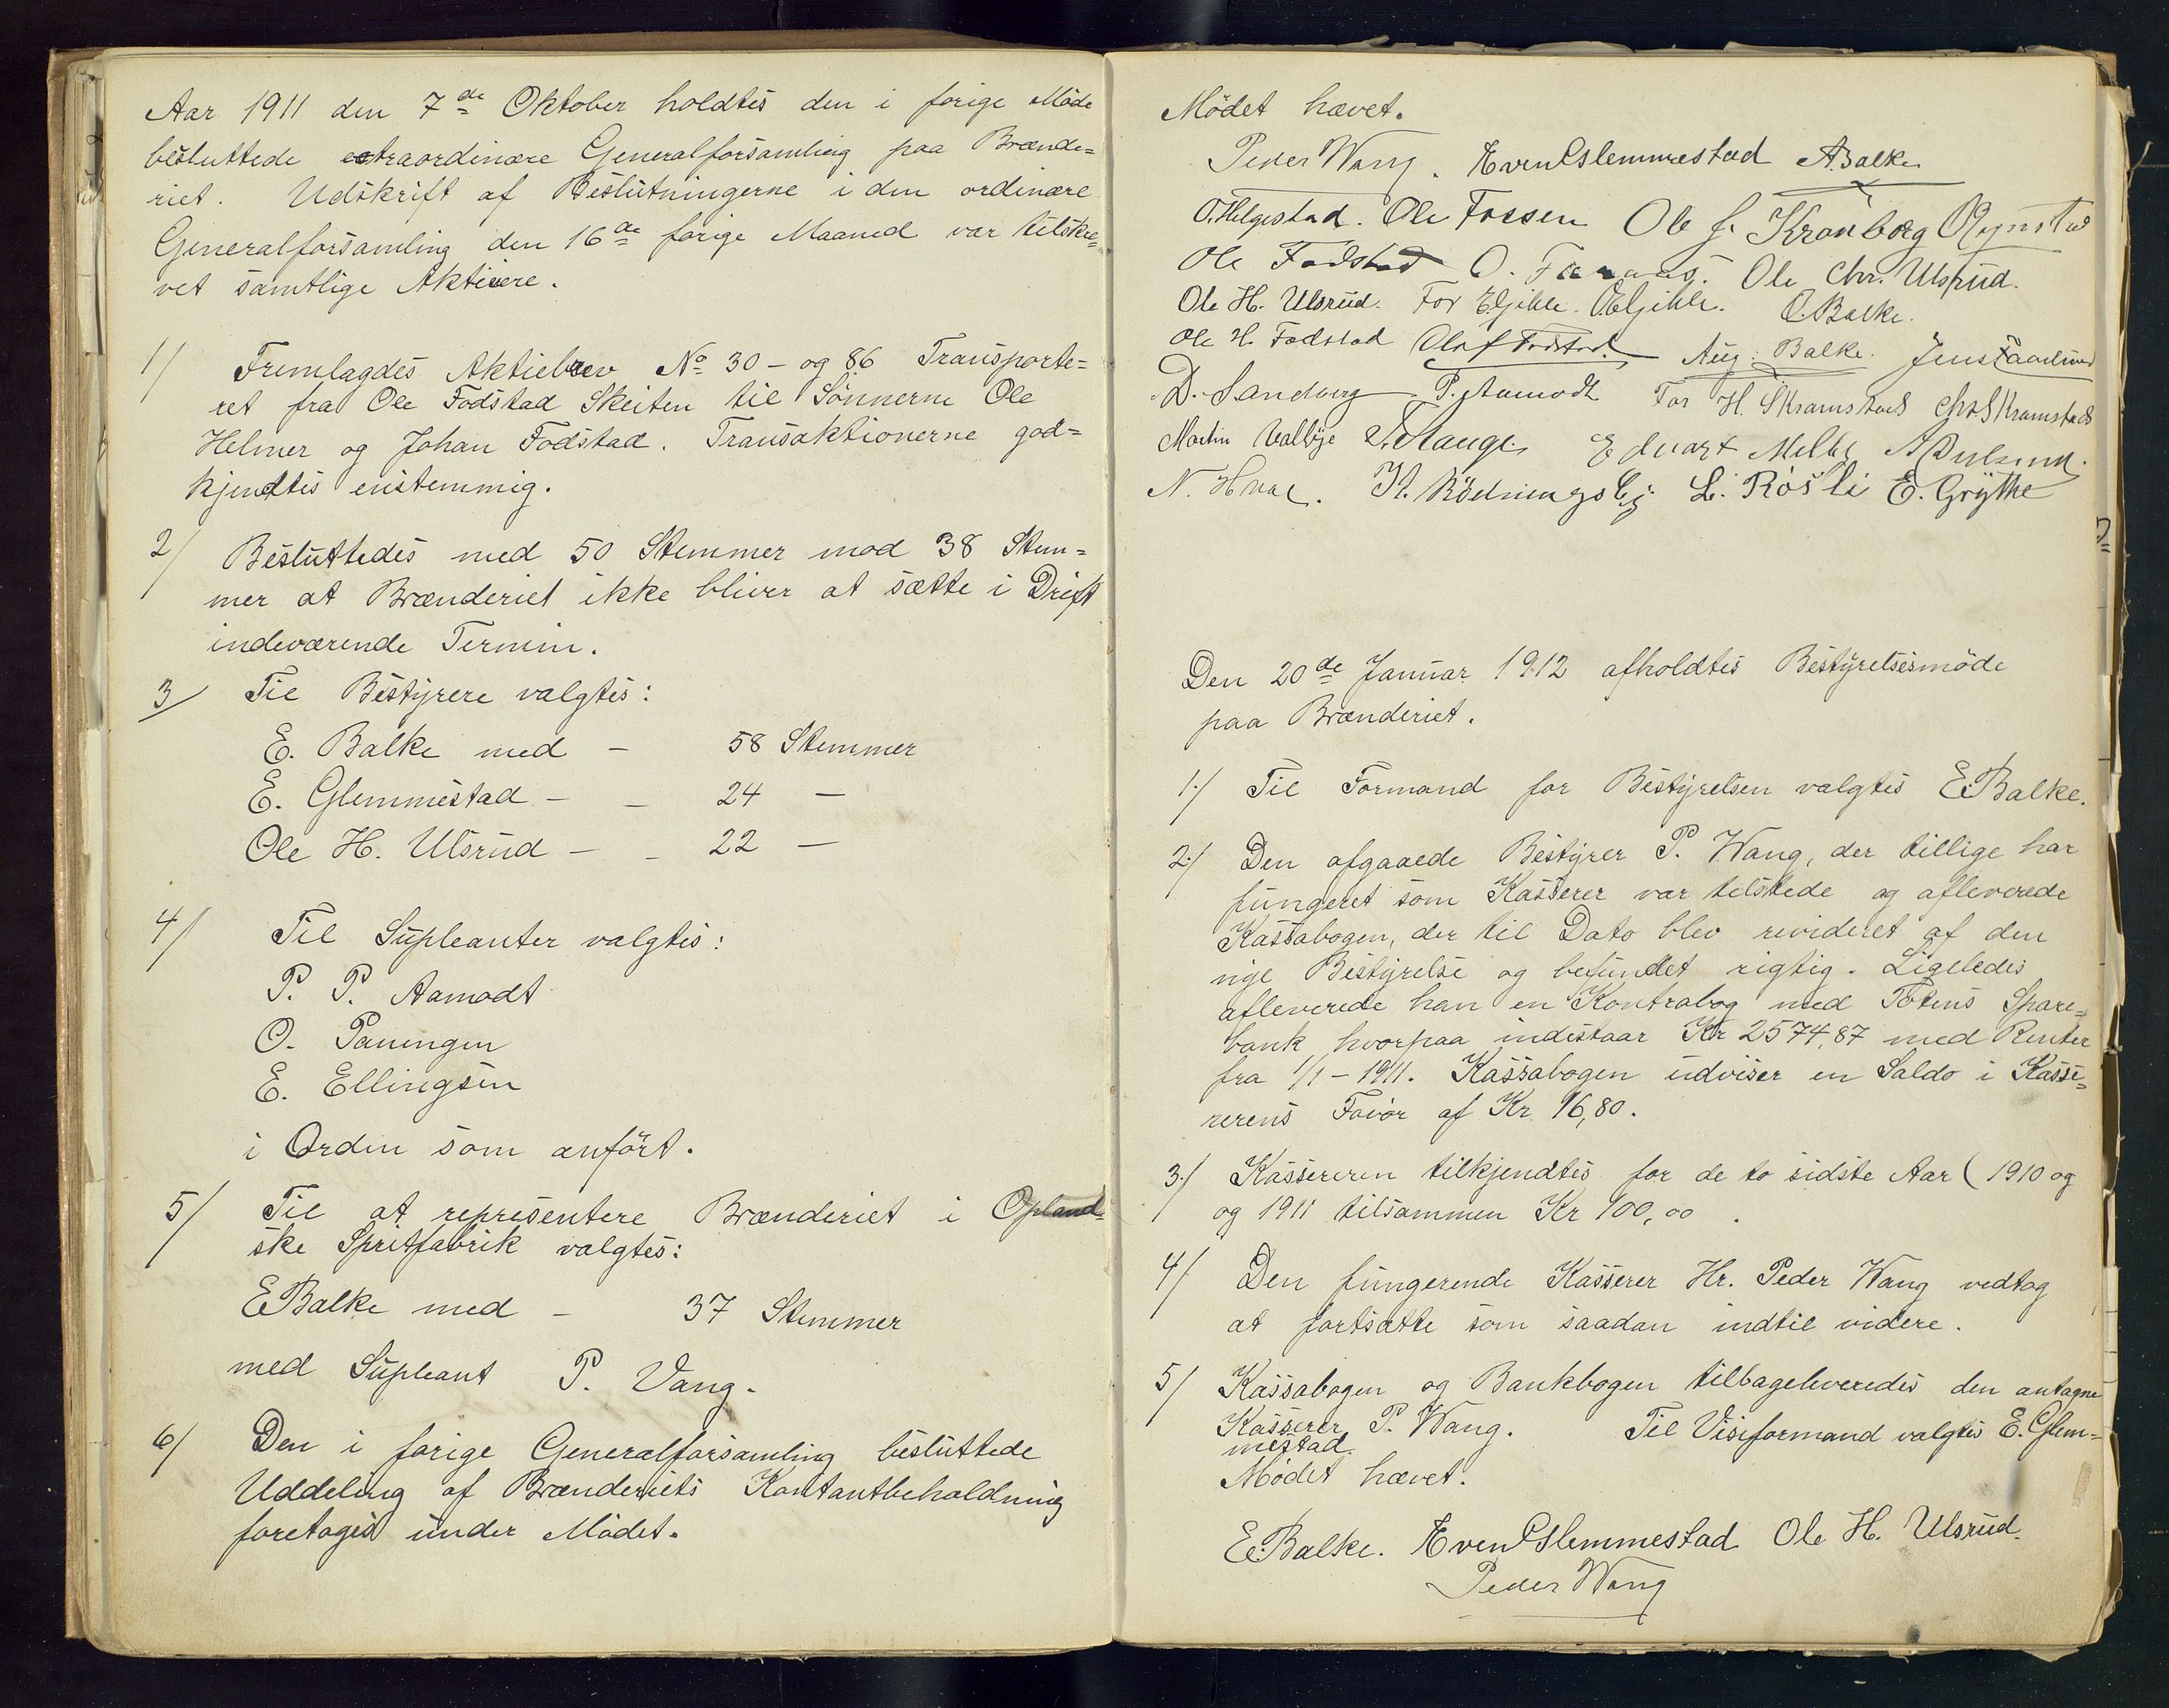 Aar 1911 den 7de Oktober holdtes den i forige Møde
besluttede extraordinære Generalforsamling paa Brænde=
riet. Udskrift af Beslutningerne i den ordinære
Generalforsamling den 16de forige Maaned var tilskre=
vet samtlige Aktieiere.
1/ Fremlagdes Aktiebrev No 30 - og 86 Transporte=
ret fra Ole Fodstad Skeiten til Sønnerne Ole
Helmer og Johan Fodstad. Transaktionerne god=
kjendtes enstemmig.
2/ Besluttedes med 50 Stemmer mod 38 Stem=
mer at Brænderiet ikke bliver at sætte i Drift
indeværende Termin.
3/ Til Bestyrere valgtes:
E. Balke med - 58 Stemmer
E. Glemmestad - - 24 -
Ole H. Ulsrud - - 22 -
4/ Til Supleanter valgtes:
P. P. Aamodt
O. Paningen
E. Ellingsen
i Orden som anført.
5/ Til at representere Brænderiet i Opland=
ske Spritfabrik valgtes:
E Balke med - 37 Stemmer
med Supleant P. Vang.
6/ Den i forige Generalforsamling besluttede
Uddeling af Brænderiets Kontantbeholdning
foretoges under Mødet.
Mødet hævet.
Peder Wang. Even Glemmestad A Balke
O. Helgestad. Ole Fossen Ole J. Kronborg
Ole Fodstad O. Ole Chr. Ulsrud.
Ole H. Ulsrud. For E. Gjihle. O. Gjihle. O. Balke.
Ole H. Fodstad Olaf Fodstad. Aug. Balke. Jens
D. Sandberg P. Aamodt For H. Skramstad Chr. Skramstad
Martin Valbye Hauge Edvart Melby
N. Hval. K. Rødningsby L. Røsli E. Grythe
Den 20de Januar 1912 afholdtes Bestyrelsesmøde
paa Brænderiet.
1./ Til Formand for Bestyrelsen valgtes E. Balke.
2./ Den afgaaede Bestyrer P. Wang, der tillige har
fungeret som Kasserer var tilstede og afleverede
Kassabogen, der til Dato blev revideret af den
nye Bestyrelse og befundet rigtig. Ligeledes
afleverede han en Kontrabog med Totens Spare=
bank hvorpaa indestaar Kr 2574,87 med Renter
fra 1/1 - 1911. Kassabogen udviser en Saldo i Kasse=
rerens Favør af Kr. 16,80.
3./ Kassereren tilkjendtes for de to sidste Aar (1910 og
og 1911 tilsammen Kr 100,00.
4/ Den fungerende Kasserer Hr. Peder Wang vedtog
at fortsætte som saadan indtil videre.
5/ Kassabogen og Bankbogen tilbageleveredes den antagne
Kasserer P. Wang. Til Viseformand valgtes E. Glem=
mestad.
Mødet hævet.
E. Balke. Even Glemmestad Ole H. Ulsrud.
Peder Wang